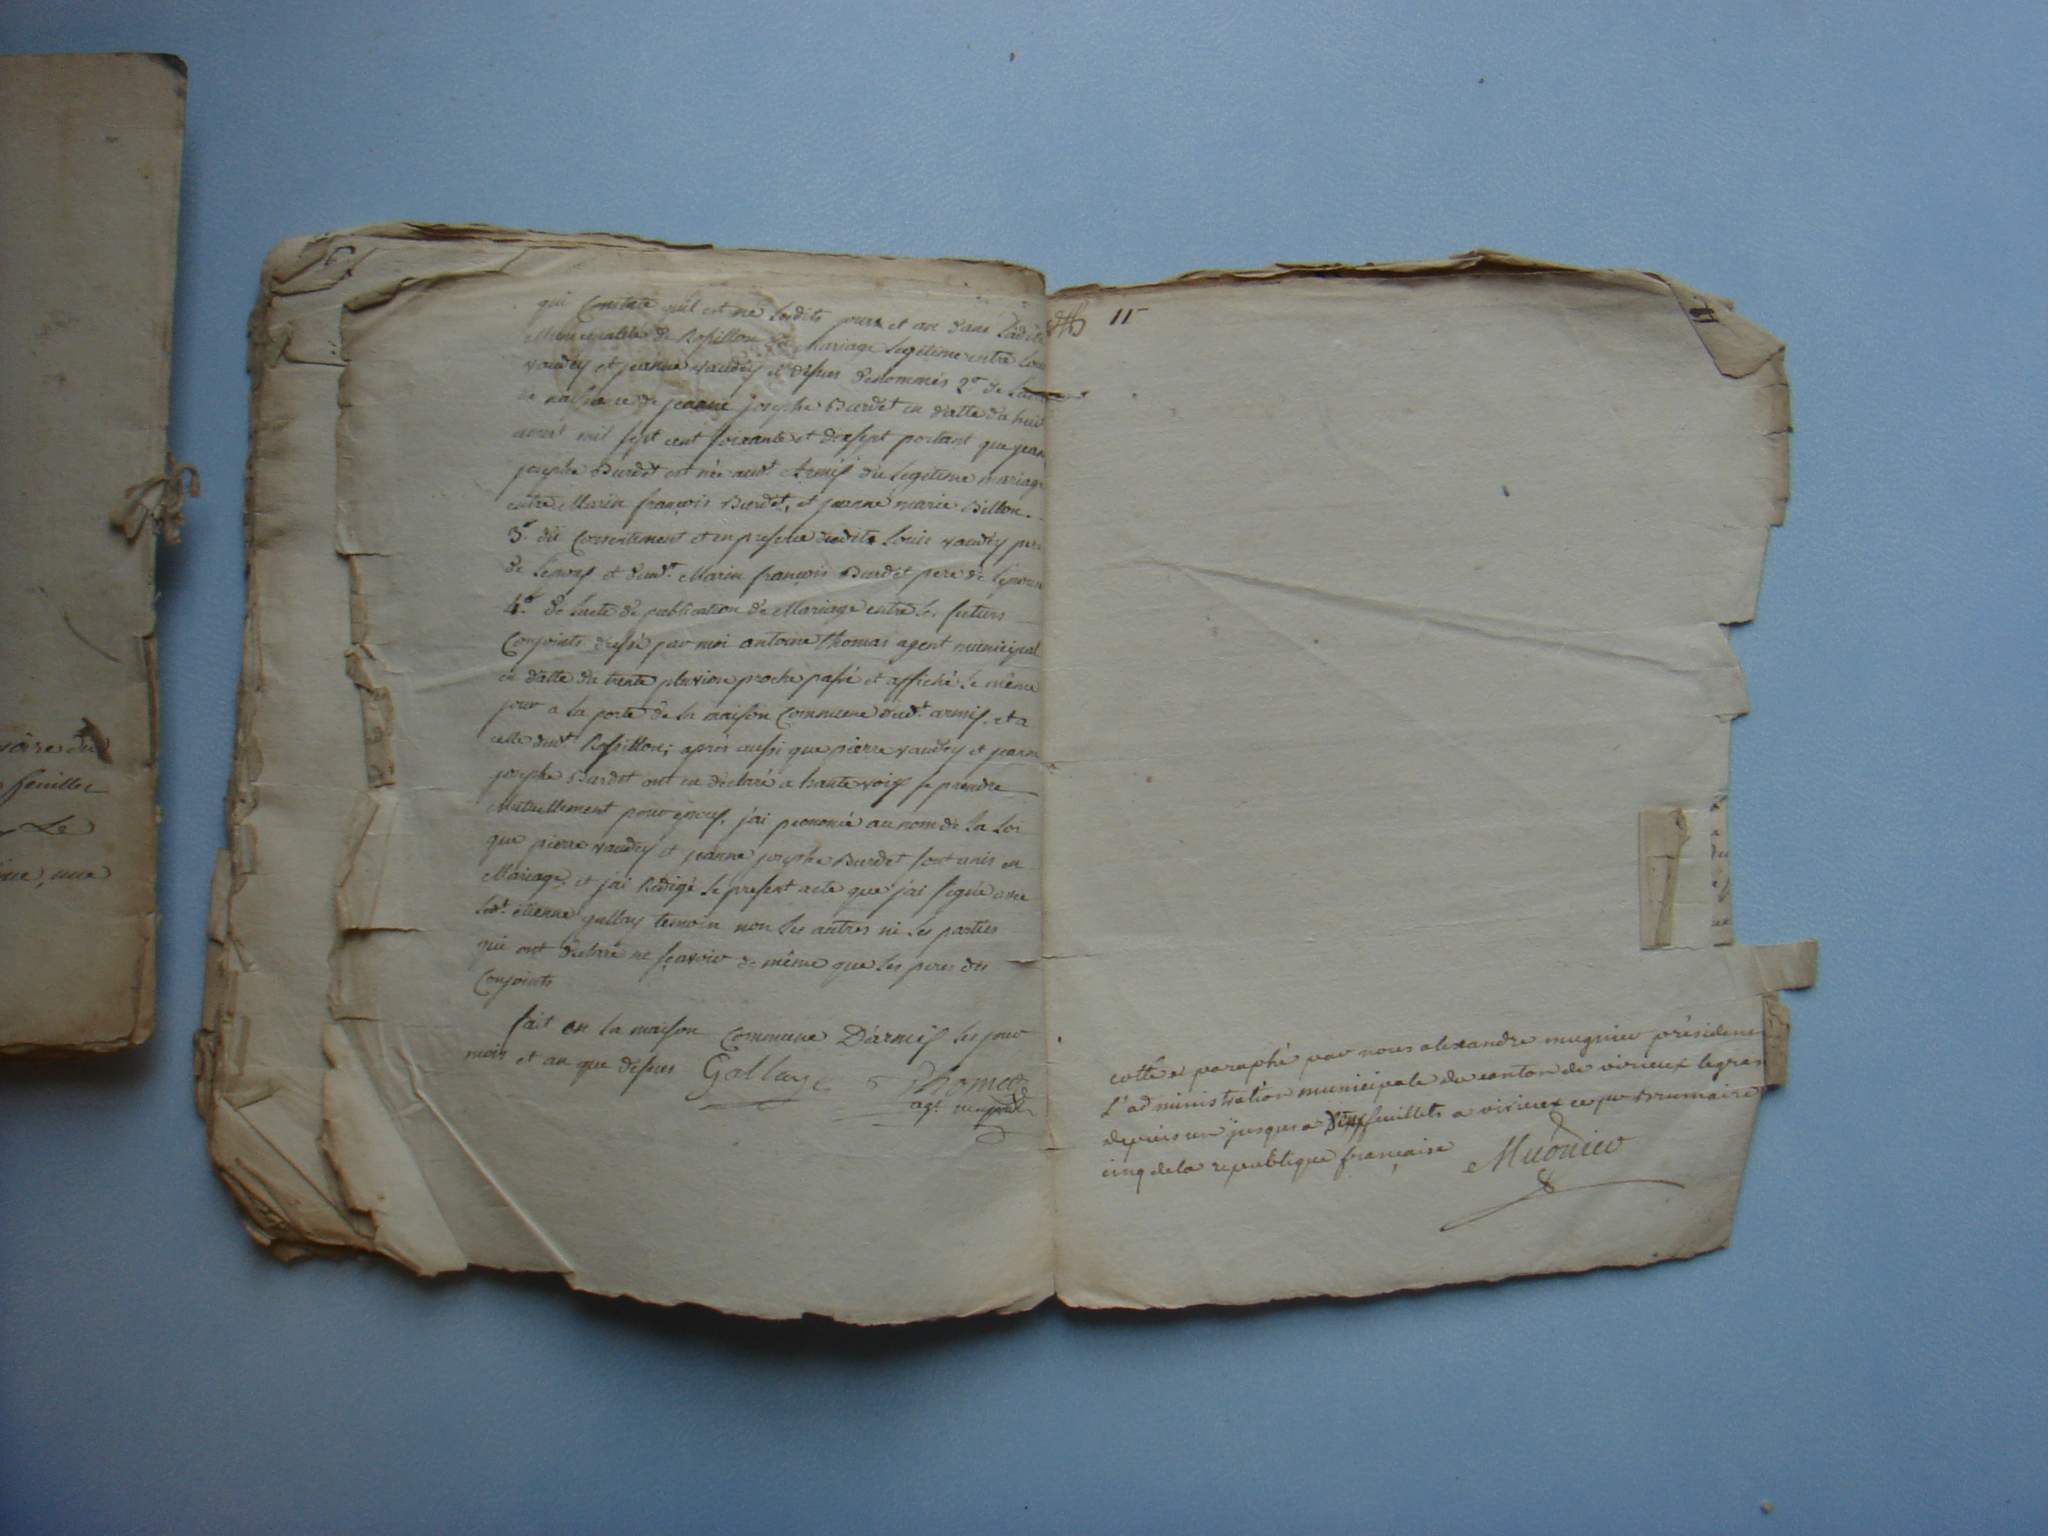 qui Constate qu'il est né lesdits jour et an dans ladite
Municipalité de Rossillon de Mariage legitime entre Louis
vaudey et jeanne vaudey cy dessus denommés 2°. de
de naissance de jeanne josephe Burdet en datte du huit
avril mil sept cent soixante et dixsept portant que jeanne
josephe Burdet est née audt. Armis du legitime mariage
entre Marin françois Burdet, et jeanne marie Billon.
3°. du Consentement et en presence dudit Louis vaudey pere
de l'epoux et dudt. Marin françois Burdet pere de l'epouse
4°. de l'acte de publication de Mariage entre les futurs
Conjoints dressé par moi antoine thomas agent municipal
en datte du trente pluviose proche passé et affiché le même
jour a la porte de la maison Commune dudt. armis, et a
celle dudt. Rossillon; aprés aussi que pierre vaudey et jeanne
josephe Burdet ont eu déclaré a haute voix se prendre
Mutuellement pour epoux, j'ai prononcé au nom de la Loi
que pierre vaudey et jeanne josephe Burdet sont unis en
Mariage, et j'ai Redigé le present acte que j'ai signé avec
ledt. etienne gallay temoin non les autres ni les parties
qui ont declaré ne sçavoir de même que les peres des
Conjoints
fait en la maison Commune D'armis les jour
mois et an que dessus Gallay Thomas
agt. municipal
11
cotté et paraphé par nous alexandre mugnier président
L'administration municipale du canton de virieux legran
depuis un jusques a feuillets a virieux ce Brumaire
cinq de la republique française Mugnier
feuilles
Le
une